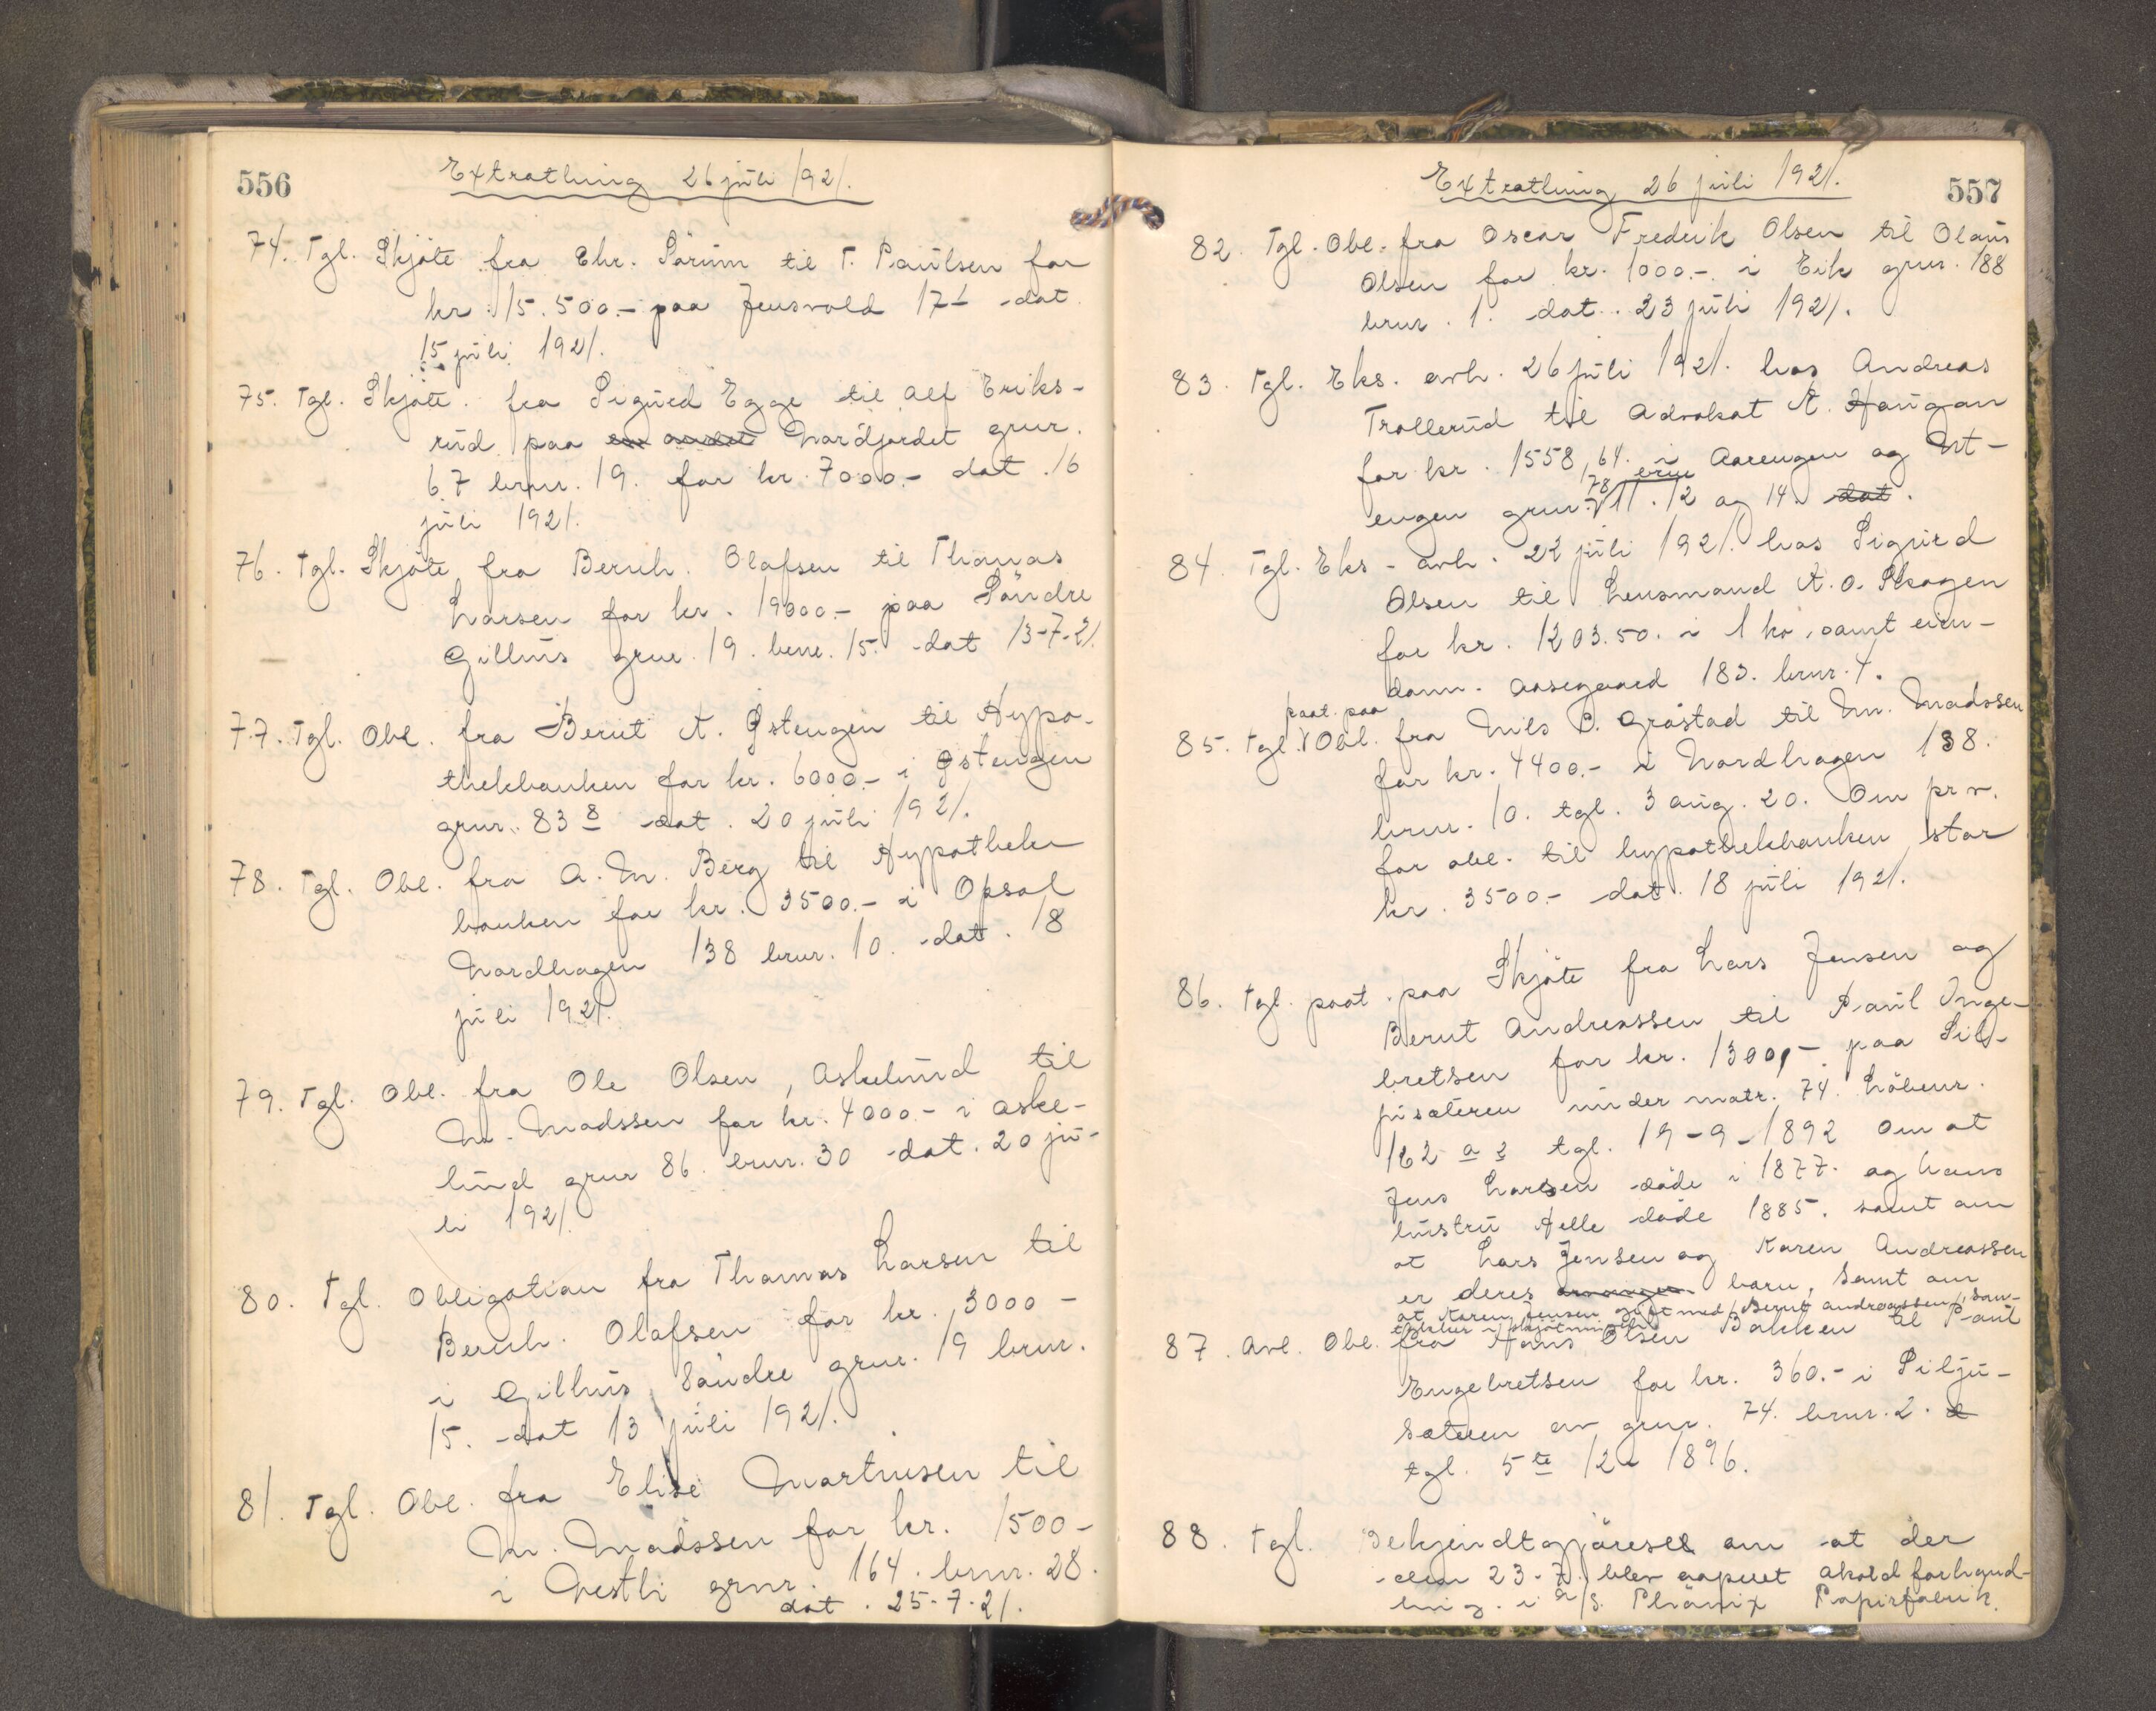 556
Extratling 26 juli 1921.
74. Tgl. Skjöte fra Chr. Sörum til T. Paulsen for
kr. 15.500.- paa Jensvold 17 dat.
15 juli 1921.
75. Tgl. Skjöte. fra Sigurd Egge til Alf Eriks-
rud paa en andel Nordjordet grnr.
67 brnr. 19. for kr. 7000.- dat. 16
juli 1921.
76. Tgl. Skjöte fra Bernh. Olafsen til Thomas
Larsen for kr. 19000.- paa Söndre
Gillhus grnr. 19. brnr. 15. dat 13-7-21.
77. Tgl. Obl. fra Bernt A. Østengen til Hypo-
thekbanken for kr. 6000.- i Østengen
grnr. 83 8 dat. 20 juli 1921.
78. Tgl. Obl. fra A. M. Berg til Hypothek
banken for kr. 3500.- i Opsal
Nordhagen 138 brnr. 10. dat. 18
juli 1921.
79. Tgl. Obl. fra Ole Olsen, Askelund til
M. Madssen for kr. 4000.- i Aske-
lund grnr 86. brnr. 30 dat. 20 ju-
li 1921.
80. Tgl. Obligation fra Thomas Larsen til
Bernh. Olafsen for kr. 3000-
i Gilhus, Söndre grnr. 19 brnr.
15. dat 13 juli 1921.
81. Tgl. Obl. fra Elise Martinsen til
M. Madssen for kr. 1500-
i Vestli grnr. 164. brnr. 28.
dat. 25-7-21.
Extratling 26 juli 1921.
557
82. Tgl. Obl. fra Oscar Fredrik Olsen til Olaus
Olsen for kr. 1000.- i Eik grnr. 188
brnr. 1. dat. 23 juli 1921.
83. Tgl. Eks. avh. 26 juli 1921. hos Andreas
Trollerud til Advokat A. Haugan
for kr. 1558,64. i Aarengen og Ut-
engen grnr. 78 brnr 11. 12 og 14. dat.
84. Tgl. Eks. avh. 22 juli 1921. hos Sigurd
Olsen til Lensmand A. O. Skogen
for kr. 1203.50. i 1 ko, samt eien-
dom. Aasegaard 183. brnr. 4.
paat. paa
85. Tgl. Obl. fra Nils B. Gråstad til M. Madssen
for kr. 4400.- i Nordhagen 138.
brnr. 10. tgl. 3 aug. 20. Om pr v.
for obl. til hypothekbanken stor
kr. 3500.- dat. 18 juli 1921.
86. Tgl. paat. paa Skjöte fra Lars Jensen og
Bernt Andreassen til Paul Inge-
bretsen for kr. 1300,- paa Sil-
jusæteren under matr. 74. Löbenr.
162 a 2 tgl. 19-9-1892 Om at
Jens Larsen döde i 1877. og hans
hustru Helle döde 1885. samt om
at Lars Jensen og Karen Andreassen
er deres arvinger barn, samt om
at Karen Jensen gift med Bernt Andreassen, sam-
tykker i skjötningen
87. Avl. Obl. fra Hans Olsen Bakken til Paul
Engebretsen for kr. 360.- i Silju-
sætren av grnr. 74. brnr. 2. d
tgl. 5te 12 1896.
88. Tgl. Bekjendtgjörelse om at der
den 23-7. blev aapnet akordforhand-
ling. i A/S. Phönix Papirfabrik.